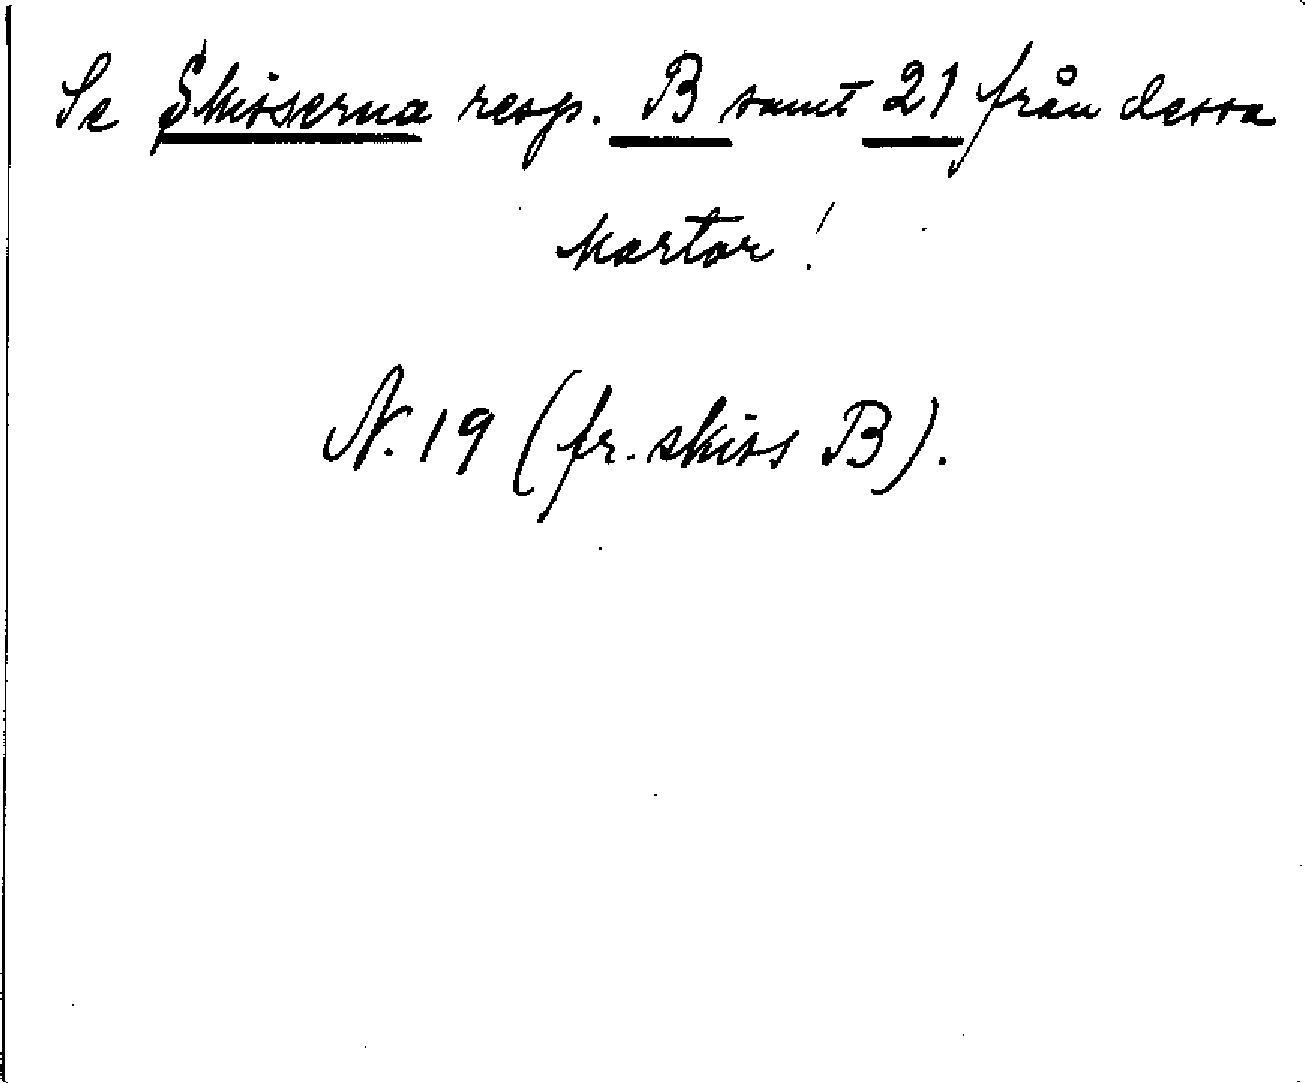 Se Skisserna resp. B samt 21 från dessa
kartor!
N. 19 (fr. skiss B).